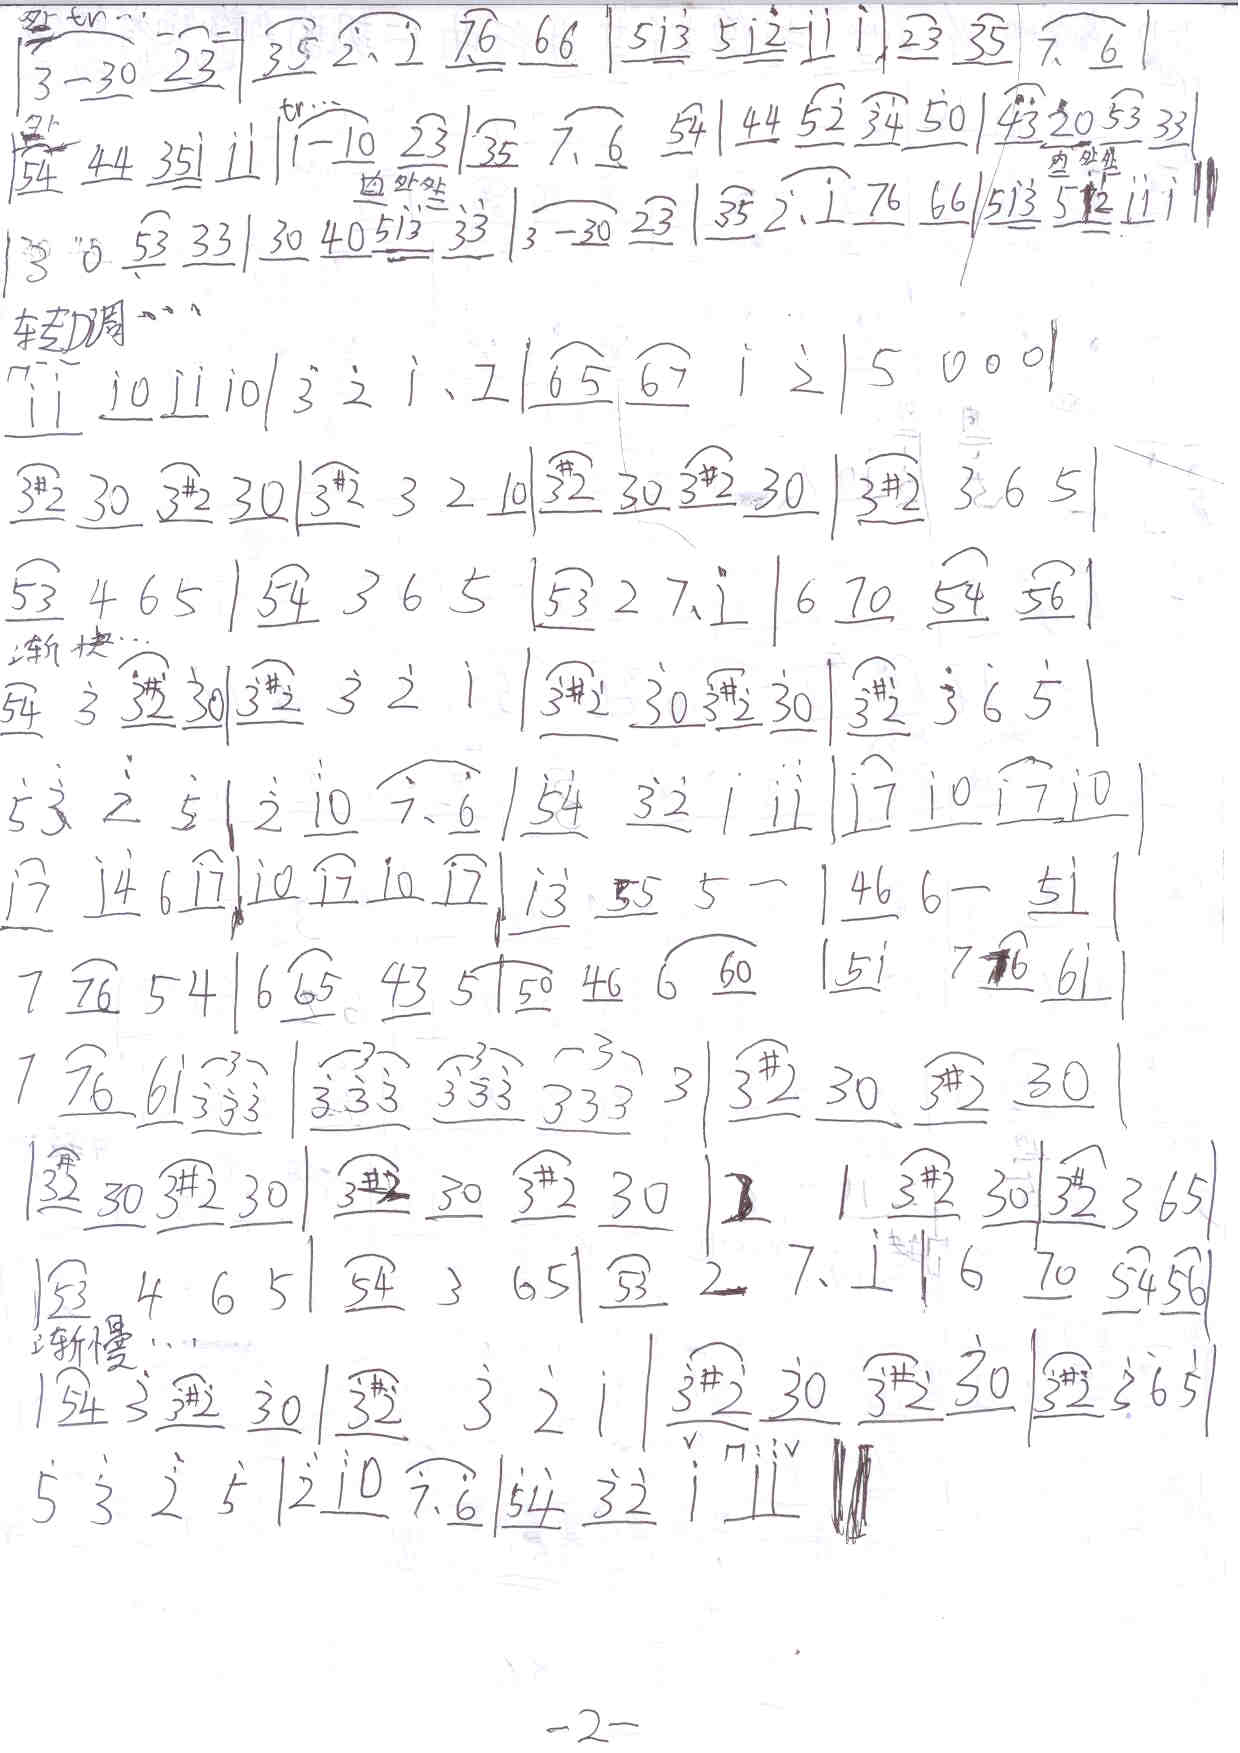 外 tr...
3 - 30 23 | 35 2̇. 1̇ 76 66 | 51̇3̇ 51̇2̇ 1̇1̇ 1̇ | 23 35 | 7. 6 |
外
| 54 44 351̇ 1̇1̇ | tr... 1̇ - 1̇0 23 | 35 7. 6 54 | 44 52̇ 3̇4 50 | 4̇3̇ 20 53 33 |
内 外 外 内 外 外
| 30 0 53 33 | 30 40 51̇3̇ 3̇3̇ | 3 - 30 23 | 35 2̇. 1̇ 76 66 | 51̇3̇ 51̇2̇ 1̇1̇ 1̇ ||
转D调...
1̇1̇ 1̇0 1̇1̇ 1̇0 | 3̇ 2̇ 1̇. 7 | 65 67 1̇ 2̇ | 5 0 0 0 |
3#2 30 3#2 30 | 3#2 3 2 10 | 3#2 30 3#2 30 | 3#2 3 6 5 |
53 4 6 5 | 54 3 6 5 | 53 2 7. 1̇ | 6 70 54 56 |
渐快...
54 3̇ 3̇#2̇ 3̇0 | 3̇#2̇ 3̇ 2̇ 1̇ | 3̇#2̇ 3̇0 3̇#2̇ 3̇0 | 3̇#2̇ 3̇ 6̇ 5̇ |
5̇ 3̇ 2̇ 5̇ | 2̇ 1̇0 7̇. 6̇ | 5̇4̇ 3̇2̇ 1̇ 1̇1̇ | 1̇7 1̇0 1̇7 1̇0 |
1̇7 1̇4̇ 6 1̇7 | 1̇0 1̇7 1̇0 1̇7 | 1̇3̇ 55 5 - | 46 6 - 51̇ |
7 76 5 4 | 6 65 43 5 | 50 46 6 60 | 51̇ 7 76 61̇ |
7 76 61̇ 3̇3̇3̇ | 3̇3̇3̇ 3̇3̇3̇ 333 3 | 3#2 30 3#2 30 |
| 3#2 30 3#2 30 | 3#2 30 3#2 30 | 1 3#2 30 | 3#2 3 6 5 |
| 53 4 6 5 | 54 3 6 5 | 53 2 7. 1̇ | 6 70 54 56 |
渐慢...
| 54 3̇ 3̇#2̇ 3̇0 | 3̇#2̇ 3̇ 2̇ 1̇ | 3̇#2̇ 3̇0 3̇#2̇ 3̇0 | 3̇#2̇ 3̇ 6̇ 5̇ |
5̇ 3̇ 2̇ 5̇ | 2̇ 1̇0 7̇. 6̇ | 5̇4̇ 3̇2̇ 1̇ 1̇1̇ ||
-2-